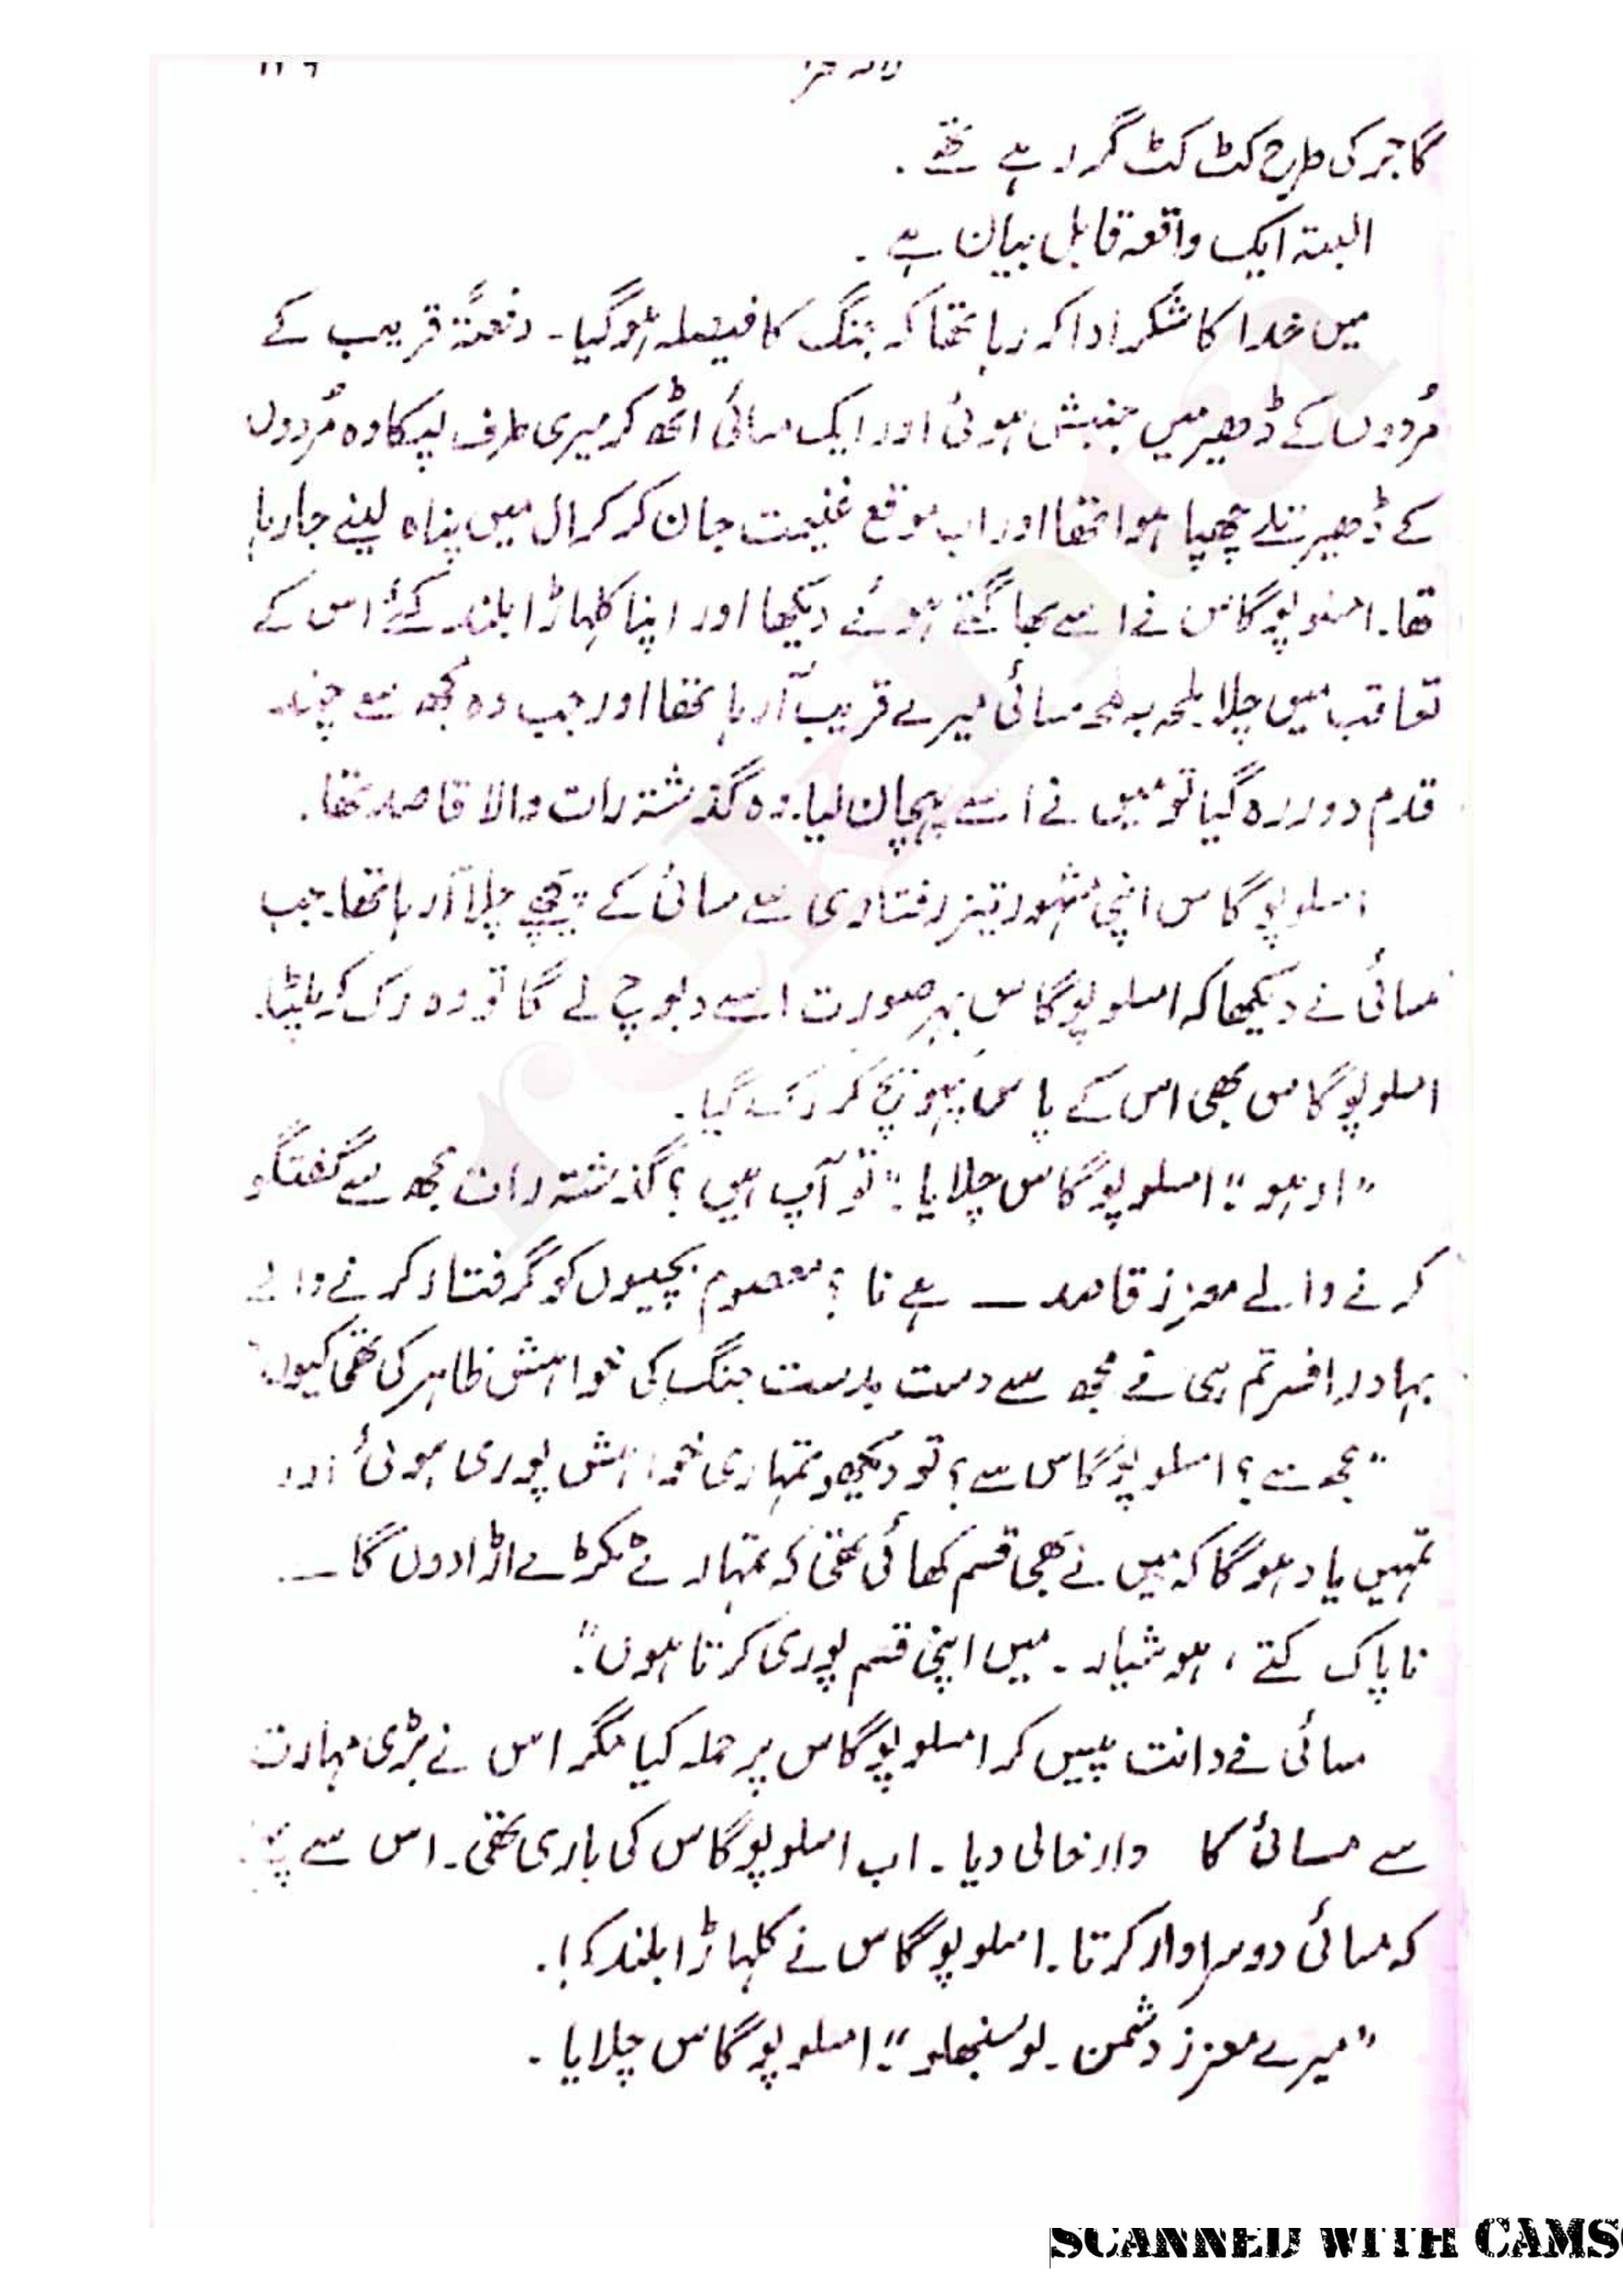 گاجر کی طرح کٹ کٹ گر رہے تھے .
البتہ ایک واقعہ قابل بیان ہے .
میں خدا کا شکر ادا کر رہا تھا کہ جنگ کا فیصلہ ہو گیا ۔ دفعتہً قریب کے
مُردوں کے ڈھیر میں جنبش ہوئی اور ایک مسائی اٹھ کر میری طرف لپکا وہ مُردوں
کے ڈھیر تلے چھپا ہوا تھا اور اب موقع غنیمت جان کر کرال میں پناہ لینے جا رہا
تھا ۔ امسلوپوگاس نے اسے بھاگتے ہوئے دیکھا اور اپنا کلہاڑا بلند کئے اس کے
تعاقب میں چلا لمحہ بہ لمحہ مسائی میرے قریب آ رہا تھا اور جب وہ مجھ سے چند
قدم دور رہ گیا تو میں نے اسے پہچان لیا ۔ وہ گذشتہ رات والا قاصد تھا .
امسلوپوگاس اپنی مشہور تیز رفتاری سے مسائی کے پیچھے چلا آ رہا تھا ۔ جب
مسائی نے دیکھا کہ امسلوپوگاس بہر صورت اسے دبوچ لے گا تو وہ رک کر پلٹا ۔
امسلوپوگاس بھی اس کے پاس پہونچ کر رک گیا .
”اوہو“! امسلوپوگاس چلایا ۔ ”تو آپ ہیں ؟ گذشتہ رات مجھ سے گفتگو
کرنے والے معزز قاصد — ہے نا ؟ معصوم بچیوں کو گرفتار کرنے والے
بہادر افسر تم ہی نے مجھ سے دست بدست جنگ کی خواہش ظاہر کی تھی کیوں ؟
”مجھ سے ؟ امسلوپوگاس سے ؟ تو دیکھو تمہاری خواہش پوری ہوئی اور
تمہیں یاد ہوگا کہ میں نے بھی قسم کھائی تھی کہ تمہارے ٹکڑے اڑا دوں گا —
ناپاک کتے ، ہوشیار ۔ میں اپنی قسم پوری کرتا ہوں“ .
مسائی نے دانت پیس کر امسلوپوگاس پر حملہ کیا مگر اس نے بڑی مہارت
سے مسائی کا وار خالی دیا ۔ اب امسلوپوگاس کی باری تھی ۔ اس سے
کہ مسائی دوسرا وار کرتا ۔ امسلوپوگاس نے کلہاڑا بلند کیا .
”میرے معزز دشمن ۔ لو سنبھلو“! امسلوپوگاس چلایا .
SCANNED WITH CAMS